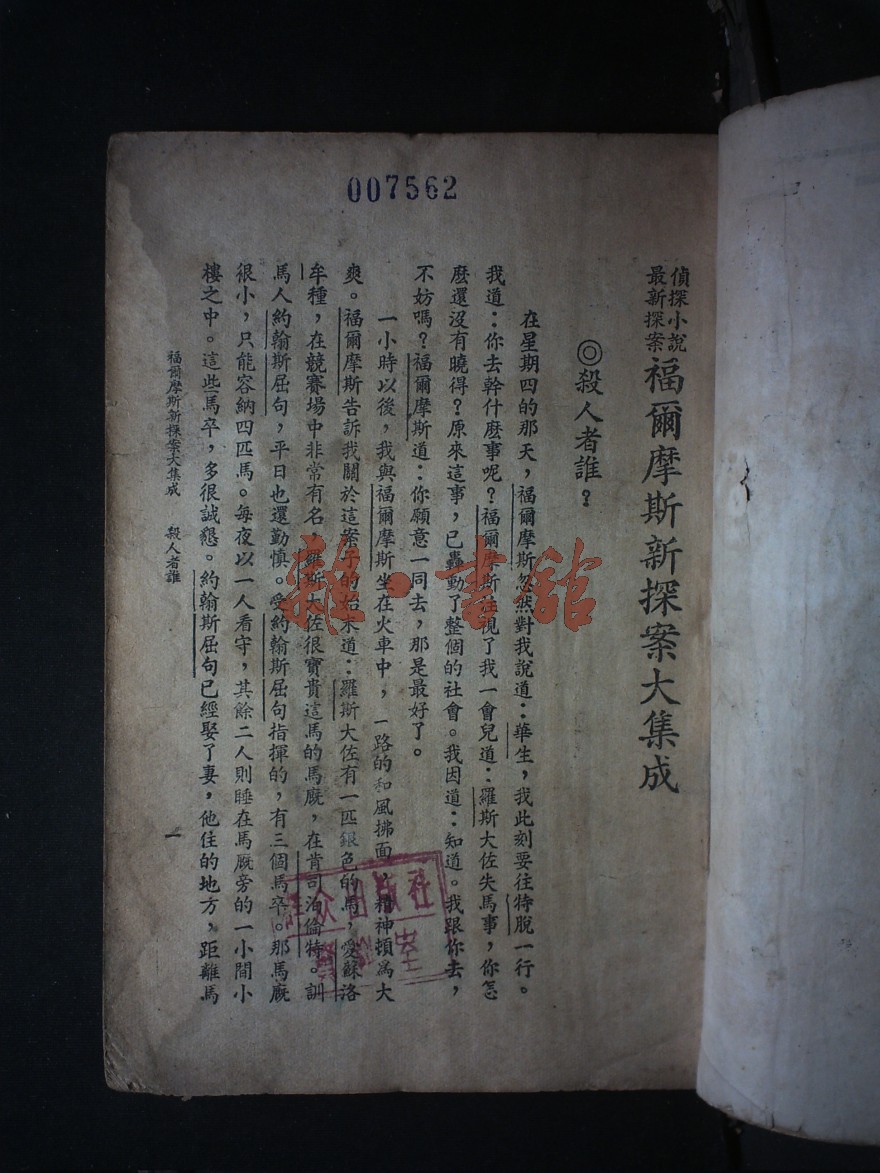 007562
偵探小說
最新探案
福爾摩斯新探案大集成
◎殺人者誰？
在星期四的那天，福爾摩斯忽然對我說道：華生，我此刻要往特脫一行。
我道：你去幹什麽事呢？福爾摩斯注視了我一會兒道：羅斯大佐失馬事，你怎
麽還沒有曉得？原來這事，已轟動了整個的社會。我因道：知道。我跟你去，
不妨嗎？福爾摩斯道：你願意一同去，那是最好了。
一小時以後，我與福爾摩斯坐在火車中，一路的和風拂面，精神頓爲大
爽。福爾摩斯告訴我關於這案子的始末道：羅斯大佐有一匹銀色的馬，愛蘇洛
牟種，在競賽場中非常有名，羅斯大佐很寶貴這馬的馬廐，在肯司泊倫特。訓
馬人約翰斯屈句，平日也還勤慎。受約翰斯屈句指揮的，有三個馬卒。那馬廐
很小，只能容納四匹馬。每夜以一人看守，其餘二人則睡在馬廐旁的一小間小
樓之中。這些馬卒，多很誠懇。約翰斯屈句已經娶了妻，他住的地方，距離馬
福爾摩斯新探案大集成 殺人者誰
一
雜·書館
群众出版社